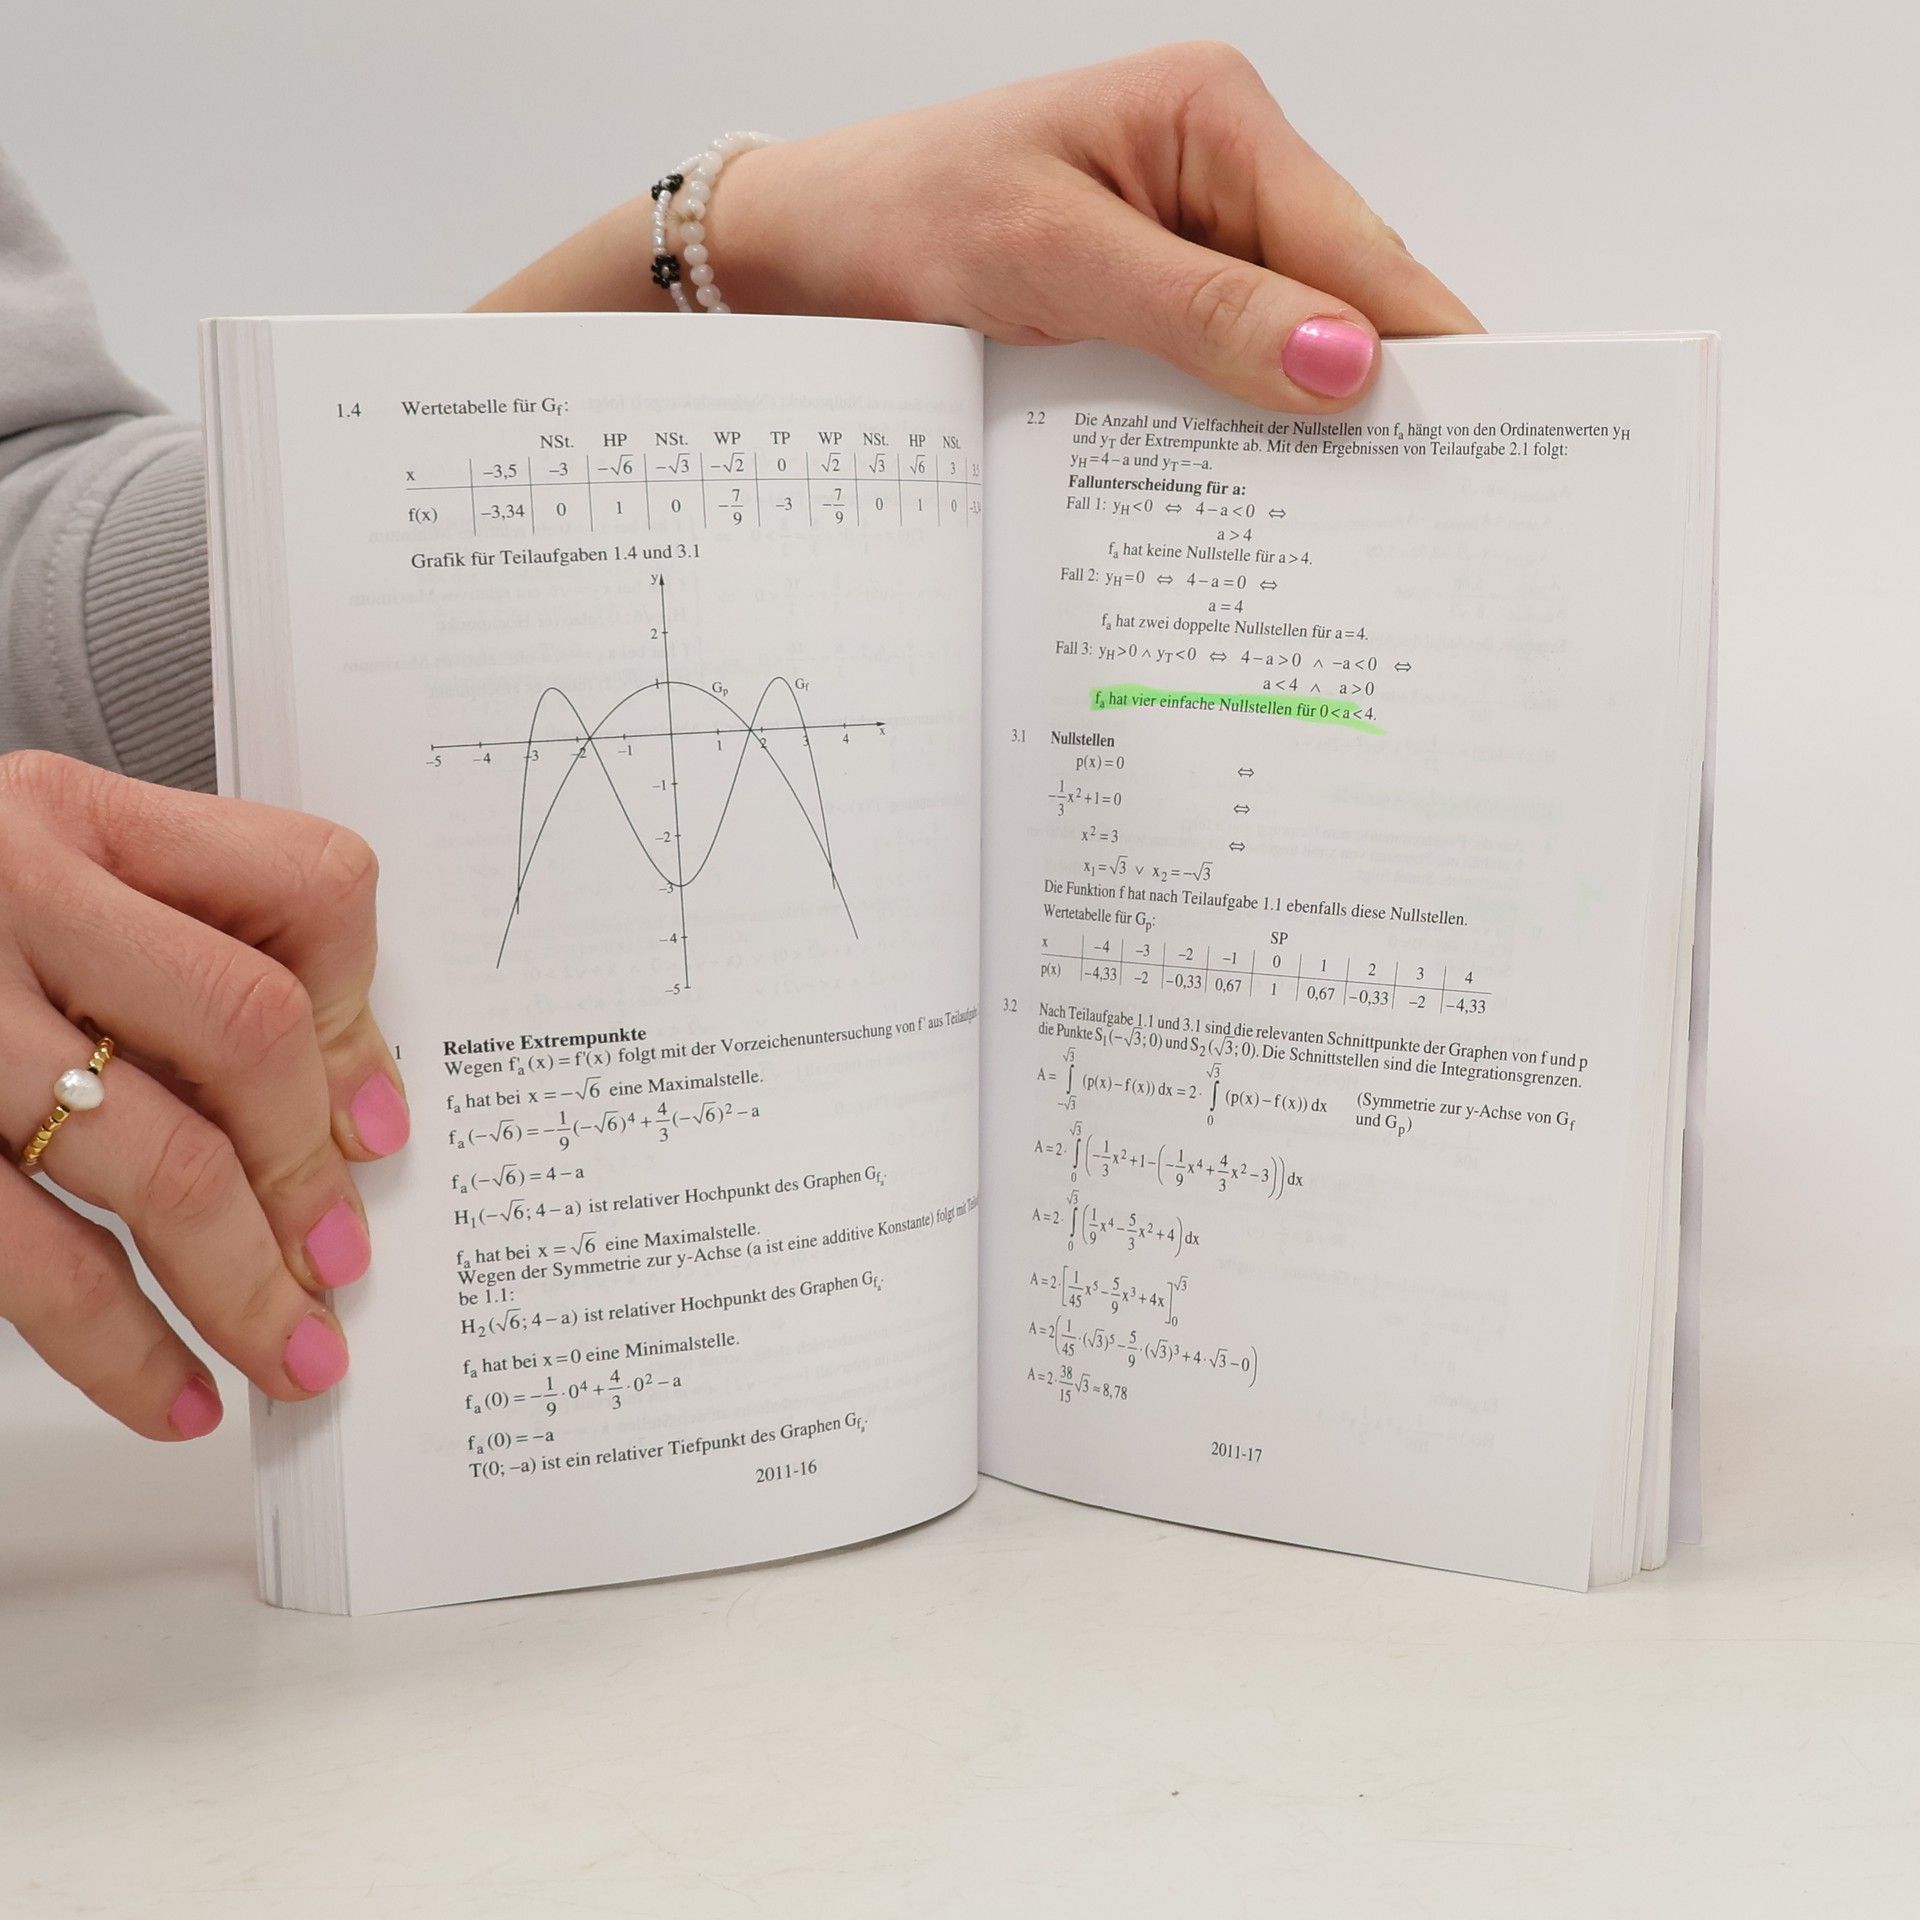 1.4 Wertetabelle für G_f:
NSt. HP NSt. WP TP WP NSt. HP NSt.
x −3,5 −3 −√6 −√3 −√2 0 √2 √3 √6 3
f(x) −3,34 0 1 0 −7/9 −3 −7/9 0 1 0
Grafik für Teilaufgaben 1.4 und 3.1
y
2
1 G_p G_f
−5 −4 −3 −2 −1 1 2 3 4 x
−1
−2
−3
−4
−5
1 Relative Extrempunkte
Wegen f'_a(x) = f'(x) folgt mit der Vorzeichenuntersuchung von f' aus
f_a hat bei x = −√6 eine Maximalstelle.
f_a(−√6) = −1/9(−√6)⁴ + 4/3(−√6)² − a
f_a(−√6) = 4 − a
H₁(−√6; 4 − a) ist relativer Hochpunkt des Graphen G_f_a.
f_a hat bei x = √6 eine Maximalstelle.
Wegen der Symmetrie zur y-Achse (a ist eine additive Konstante) folgt mit
be 1.1:
H₂(√6; 4 − a) ist relativer Hochpunkt des Graphen G_f_a.
f_a hat bei x = 0 eine Minimalstelle.
f_a(0) = −1/9 · 0⁴ + 4/3 · 0² − a
f_a(0) = −a
T(0; −a) ist ein relativer Tiefpunkt des Graphen G_f_a.
2011-16
2.2 Die Anzahl und Vielfachheit der Nullstellen von f_a hängt von den Ordinatenwerten y_H
und y_T der Extrempunkte ab. Mit den Ergebnissen von Teilaufgabe 2.1 folgt:
y_H = 4 − a und y_T = −a.
Fallunterscheidung für a:
Fall 1: y_H < 0 ⇔ 4 − a < 0 ⇔
a > 4
f_a hat keine Nullstelle für a > 4.
Fall 2: y_H = 0 ⇔ 4 − a = 0 ⇔
a = 4
f_a hat zwei doppelte Nullstellen für a = 4.
Fall 3: y_H > 0 ∧ y_T < 0 ⇔ 4 − a > 0 ∧ −a < 0 ⇔
a < 4 ∧ a > 0
f_a hat vier einfache Nullstellen für 0 < a < 4.
3.1 Nullstellen
p(x) = 0 ⇔
−1/3x² + 1 = 0 ⇔
x² = 3 ⇔
x₁ = √3 ∨ x₂ = −√3
Die Funktion f hat nach Teilaufgabe 1.1 ebenfalls diese Nullstellen.
Wertetabelle für G_p:
SP
x −4 −3 −2 −1 0 1 2 3 4
p(x) −4,33 −2 −0,33 0,67 1 0,67 −0,33 −2 −4,33
3.2 Nach Teilaufgabe 1.1 und 3.1 sind die relevanten Schnittpunkte der Graphen von f und p
die Punkte S₁(−√3; 0) und S₂(√3; 0). Die Schnittstellen sind die Integrationsgrenzen.
A = ∫_{−√3}^{√3} (p(x) − f(x)) dx = 2 · ∫_0^{√3} (p(x) − f(x)) dx (Symmetrie zur y-Achse von G_f
und G_p)
A = 2 · ∫_0^{√3} (−1/3x² + 1 − (−1/9x⁴ + 4/3x² − 3)) dx
A = 2 · ∫_0^{√3} (1/9x⁴ − 5/3x² + 4) dx
A = 2 · [1/45x⁵ − 5/9x³ + 4x]_0^{√3}
A = 2(1/45 · (√3)⁵ − 5/9 · (√3)³ + 4 · √3 − 0)
A = 2 · 38/15√3 ≈ 8,78
2011-17